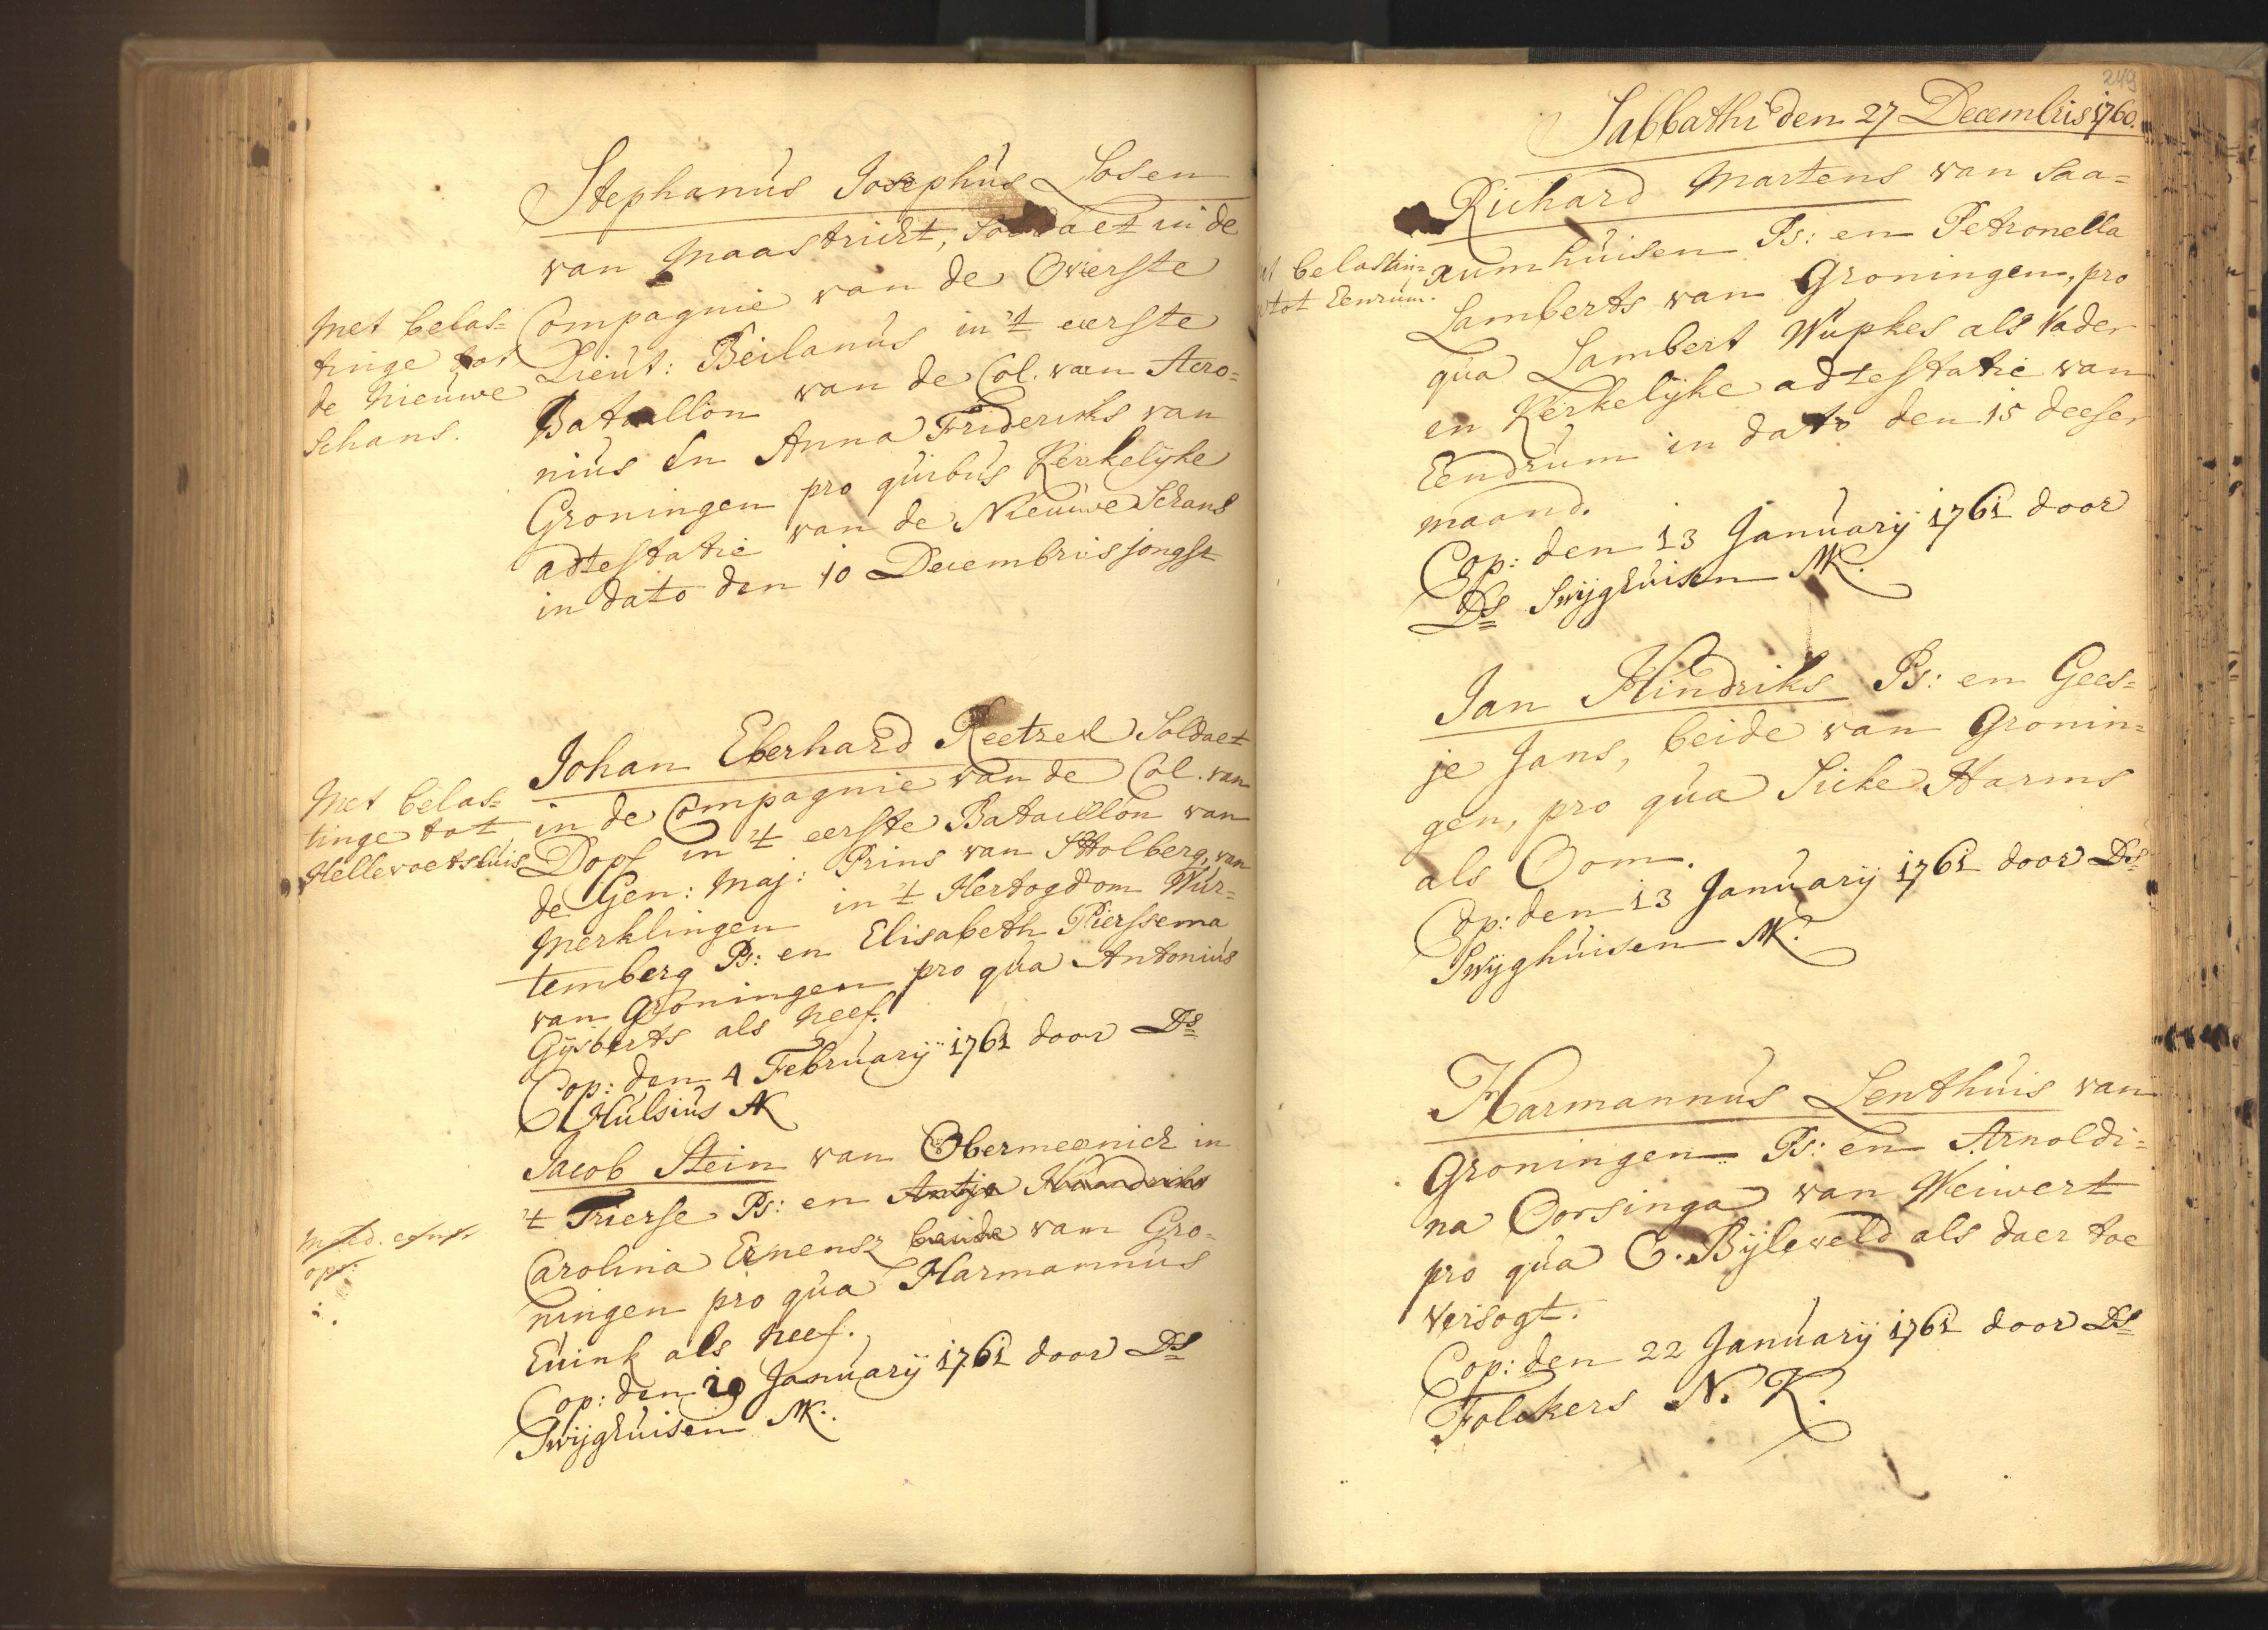 Stephanus Josephus Losen
van Maastricht, Soldaet in de
Compagnie van de Overste
Lieut: Beilanus in 't eerste
Bataillon van de Col. van Acro=
nius En Anna Frideriks van
Groningen pro quibus Kerkelijke
adtestatie van de Nieuwe Schans
in dato den 10 Decembris jongst
Met belas=
tinge tot
de Nieuwe
Schans.
Johan Eberhard Reetzel Soldaet
in de Compagnie van de Col. van
Dopf in 't eerste Bataillon van
de Gen: Maj: Prins van Stolberg, van
Merklingen in 't Hertogdom Wur=
temberg Ps: en Elisabeth Pierssema
van Groningen pro qua Antonius
Gijsberts als Neef.
Cop: den 4 February 1761 door Ds
Hulsius AK
Met belas=
tinge tot
Hellevoetsluis
Jacob Stein van Obermeenich in
't Trierse Ps: en Antje Handriks
Carolina Ernensz beide van Gro=
ningen pro qua Harmannus
Euink als Neef.
Cop: den 29 January 1761 door Ds
Swijghuisen MK.
249
Sabbathi den 27 Decembris 1760.
Richard Martens van Saa=
xumhuisen Ps: en Petronella
Lamberts van Groningen, pro
qua Lambert Wupkes als Vader
en Kerkelijke adtestatie van
Eendrum in dato den 15 deeser
maand.
Cop: den 13 January 1761 door
Ds Swijghuisen MK.
belastin=
tot Eenrum.
Jan Hindriks Ps: en Gees=
je Jans, beide van Gronin=
gen, pro qua Sicke Harms
als Oom.
Cop: den 13 January 1761 door Ds
Swijghuisen MK.
Harmannus Lenthuis van
Groningen Ps: en Arnoldi=
na Oorsinga van Weiwert
pro qua E. Bijleveld als daer toe
versogt.
Cop: den 22 January 1761 door Ds
Folckers N. K.